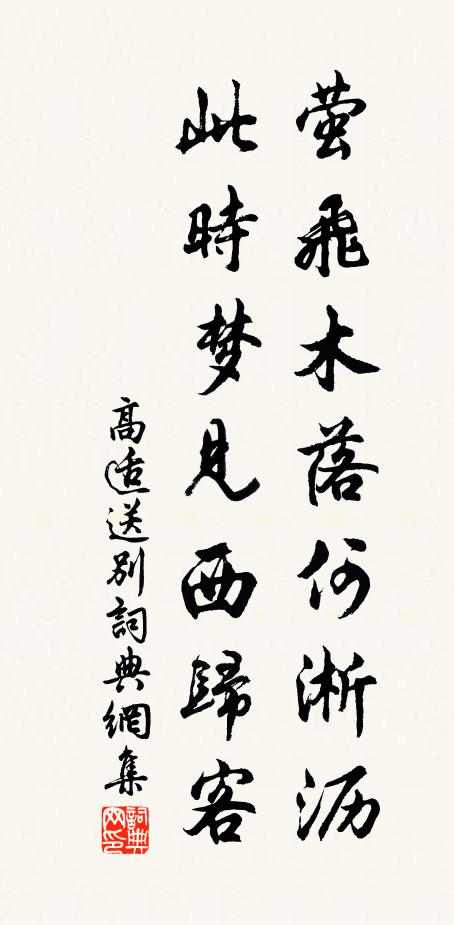 萤飛木落何淅沥
此時梦見西歸客
高適送别詞典網集
詞典网印